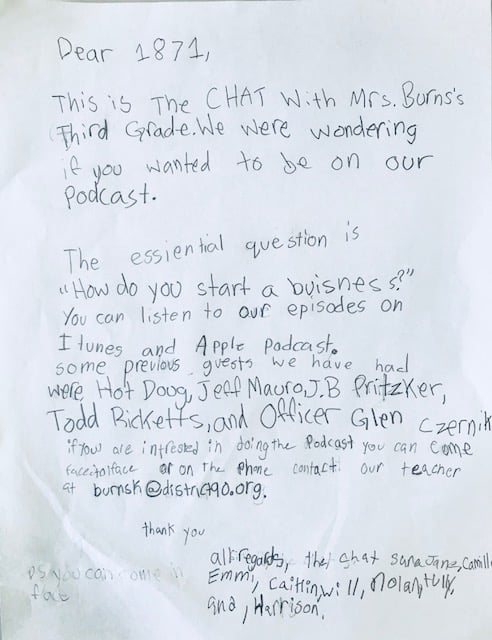 Dear 1871,
This is The CHAT With Mrs. Burns's
Third Grade. We were wondering
if you wanted to be on our
Podcast.
The essiential question is
"How do you start a buisness?"
You can listen to our episodes on
Itunes and Apple Podcast.
some previous guests we have had
were Hot Doug, Jeff Mauro, J.B Pritzker,
Todd Ricketts, and Officer Glen Czernik
if you are intrested in doing the Podcast you can come
face to face or on the Phone contact our teacher
at burnsk@district90.org.
thank you
all regards, the chat Sara Jane, Camille
Emmi, Caitlin, will, Nolan,
and, Harrison.
Ps you can come in